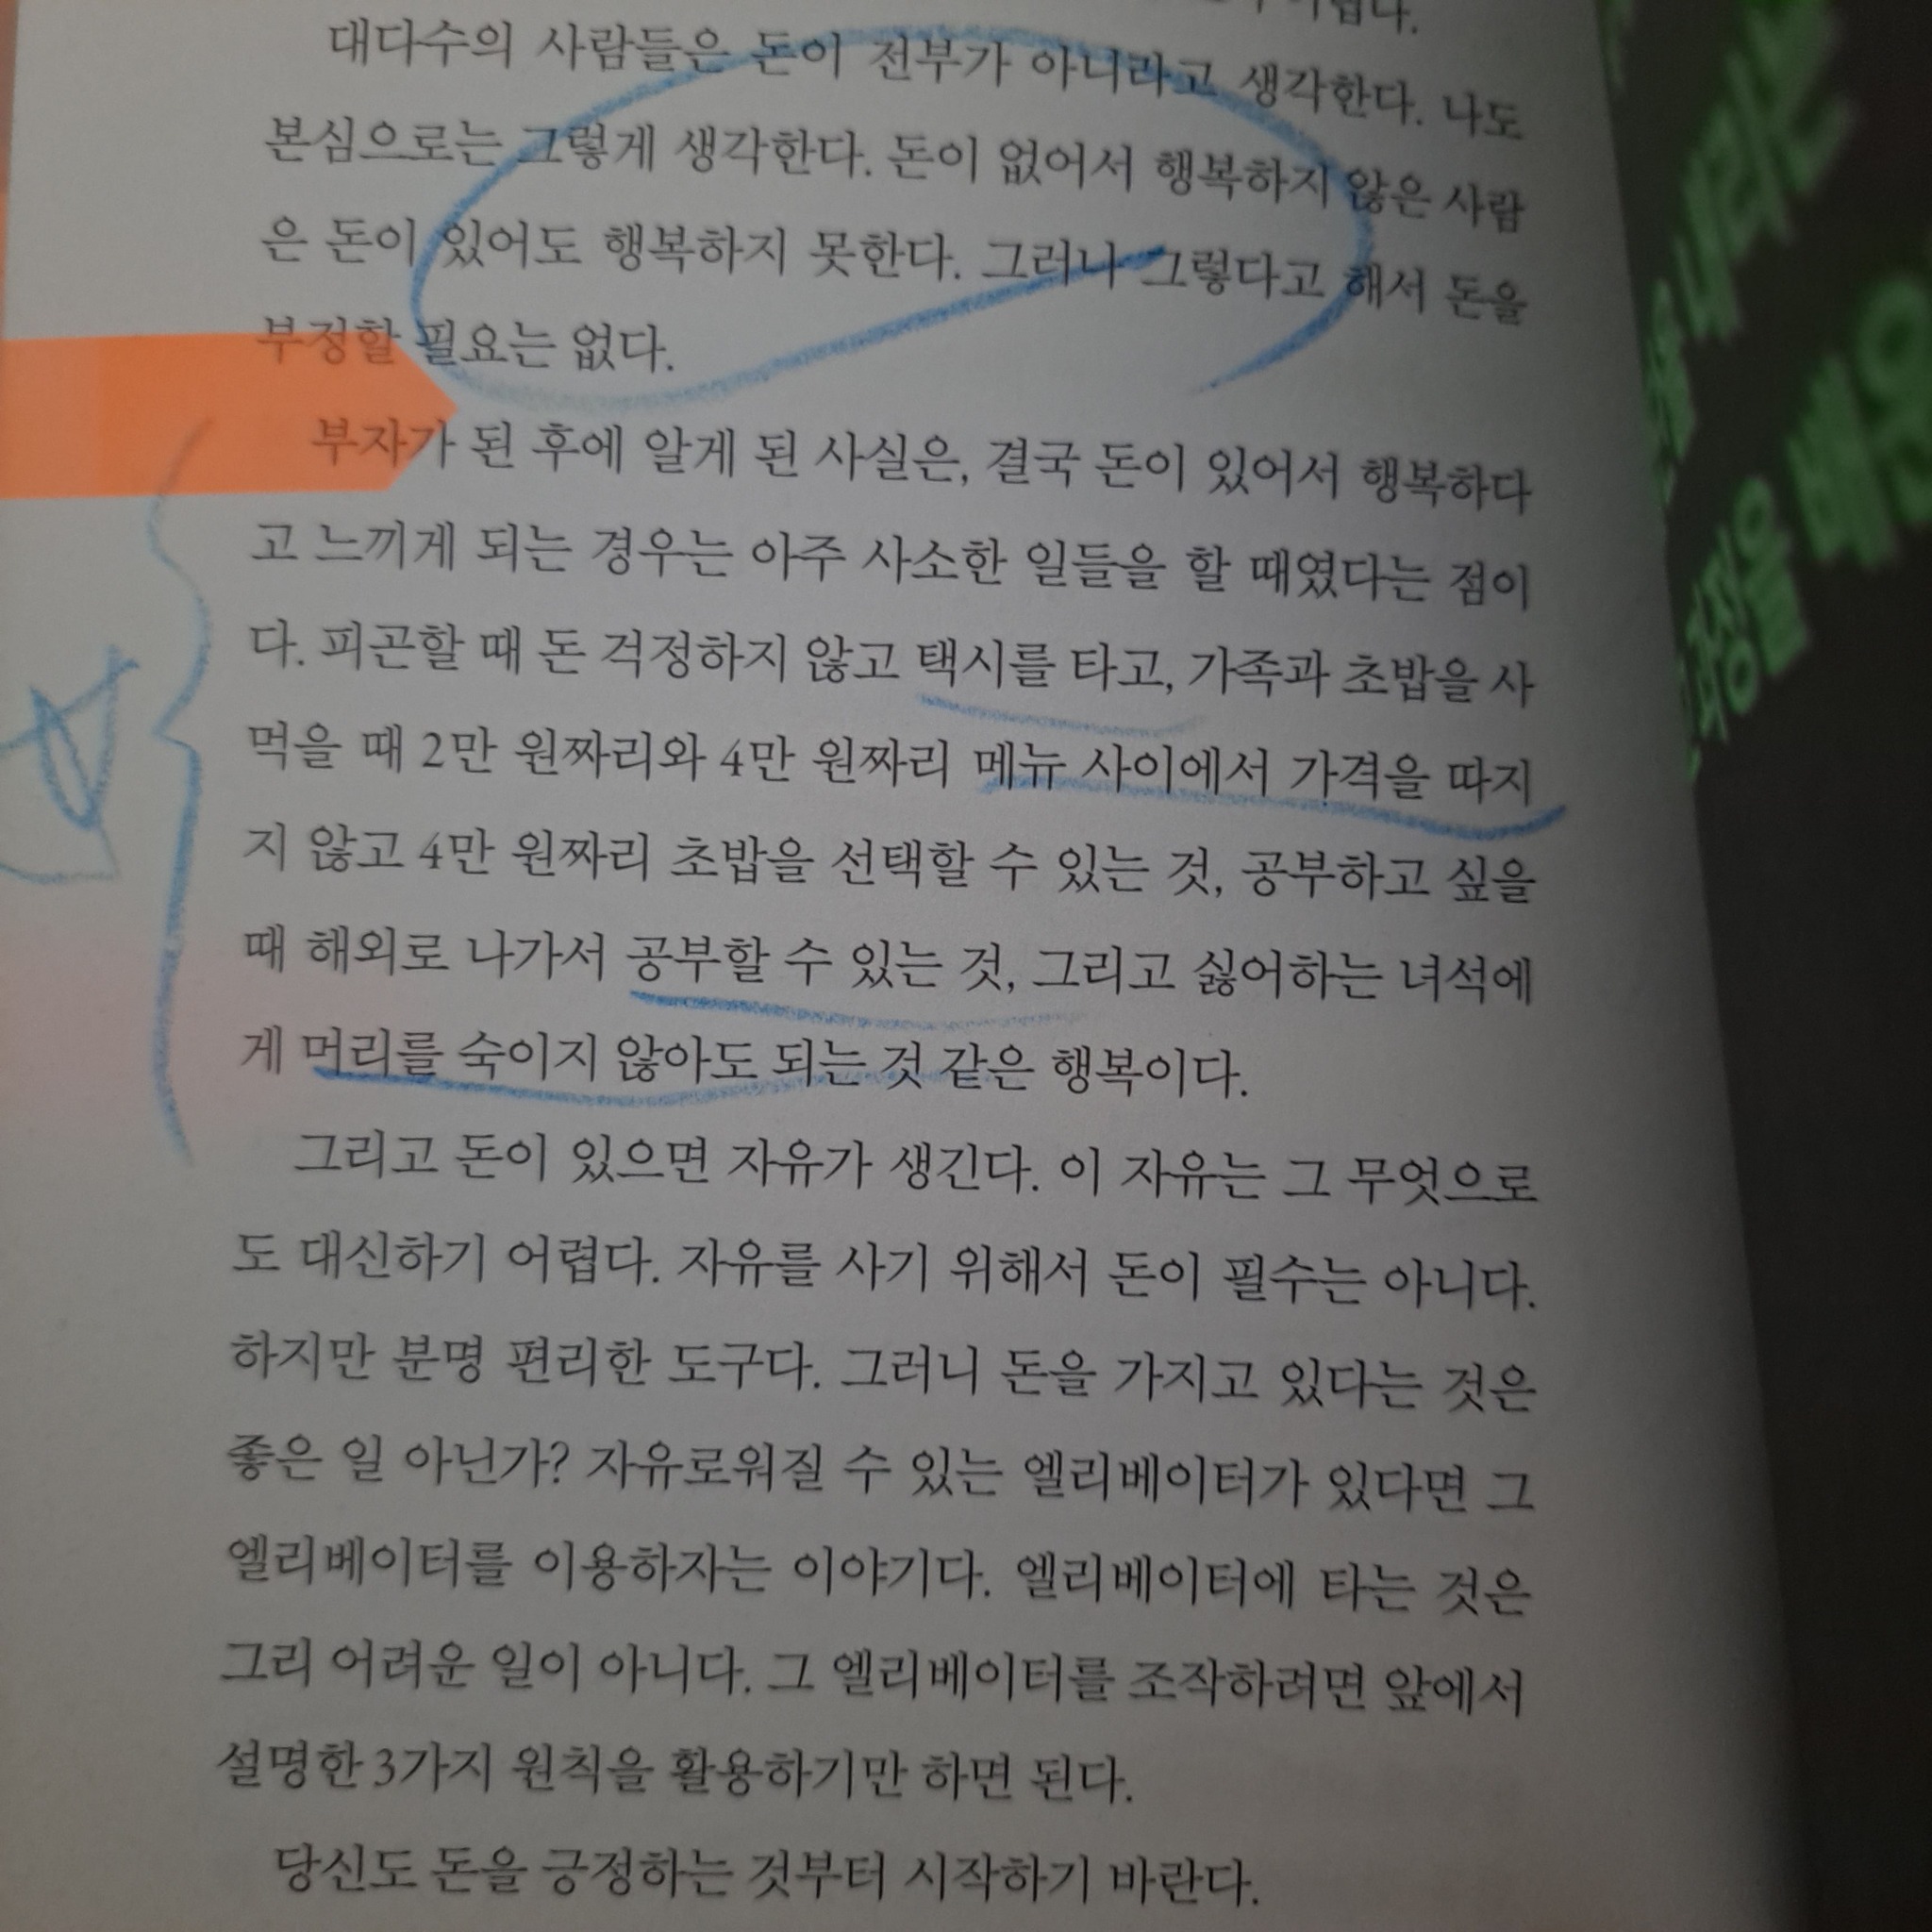 대다수의 사람들은 돈이 전부가 아니라고 생각한다. 나도
본심으로는 그렇게 생각한다. 돈이 없어서 행복하지 않은 사람
은 돈이 있어도 행복하지 못한다. 그러나 그렇다고 해서 돈을
부정할 필요는 없다.
부자가 된 후에 알게 된 사실은, 결국 돈이 있어서 행복하다
고 느끼게 되는 경우는 아주 사소한 일들을 할 때였다는 점이
다. 피곤할 때 돈 걱정하지 않고 택시를 타고, 가족과 초밥을 사
먹을 때 2만 원짜리와 4만 원짜리 메뉴 사이에서 가격을 따지
지 않고 4만 원짜리 초밥을 선택할 수 있는 것, 공부하고 싶을
때 해외로 나가서 공부할 수 있는 것, 그리고 싫어하는 녀석에
게 머리를 숙이지 않아도 되는 것 같은 행복이다.
그리고 돈이 있으면 자유가 생긴다. 이 자유는 그 무엇으로
도 대신하기 어렵다. 자유를 사기 위해서 돈이 필수는 아니다.
하지만 분명 편리한 도구다. 그러니 돈을 가지고 있다는 것은
좋은 일 아닌가? 자유로워질 수 있는 엘리베이터가 있다면 그
엘리베이터를 이용하자는 이야기다. 엘리베이터에 타는 것은
그리 어려운 일이 아니다. 그 엘리베이터를 조작하려면 앞에서
설명한 3가지 원칙을 활용하기만 하면 된다.
당신도 돈을 긍정하는 것부터 시작하기 바란다.